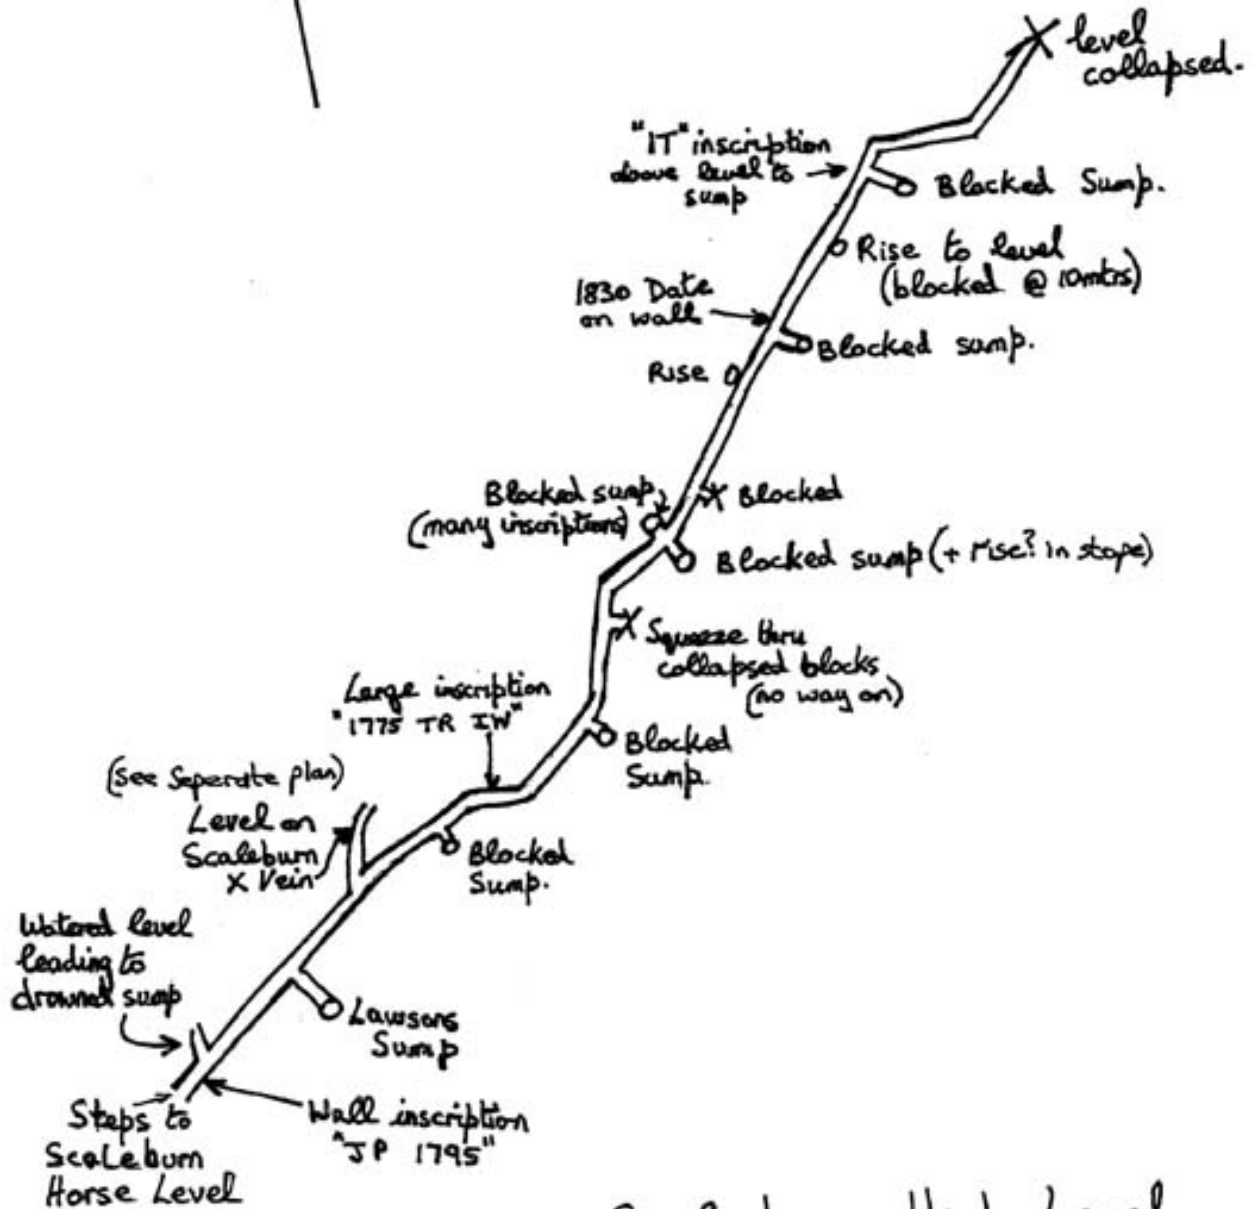 level
collapsed.
"IT" inscription
above level to
sump
Blocked Sump.
Rise to level
(blocked @ 10mtrs)
1830 Date
on wall
Blocked sump.
Rise
Blocked sump
(many inscriptions)
Blocked
Blocked sump (+ rise? in stope)
Squeeze thru
collapsed blocks
(no way on)
Large inscription
"1775 TR IW"
Blocked
Sump.
(see Seperate plan)
Level on
Scaleburn
X Vein
Blocked
Sump.
Watered level
leading to
drowned sump
Lawsons
Sump
Steps to
Scaleburn
Horse Level
Wall inscription
"JP 1795"